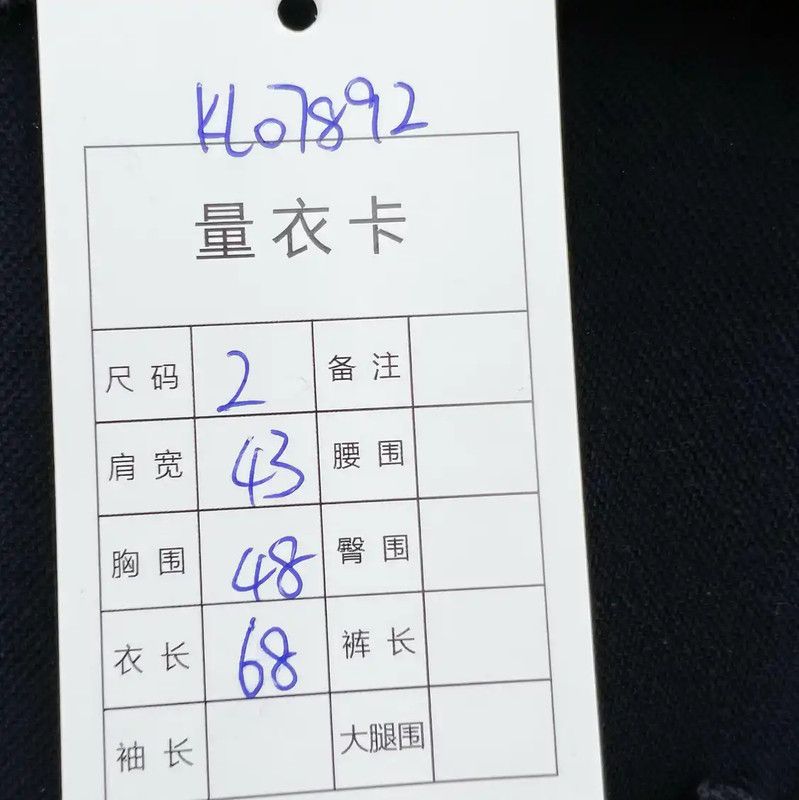 KL07892
量衣卡
尺码 2 备注
肩宽 43 腰围
胸围 48 臀围
衣长 68 裤长
袖长 大腿围